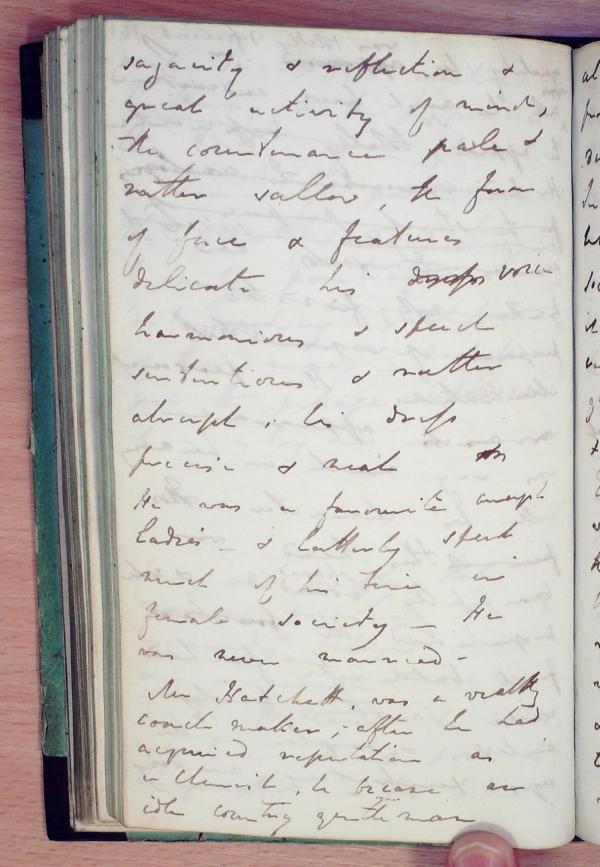 sagacity & reflection &
great activity of mind,
the countenance pale &
rather sallow, the form
of face & features
delicate his voice
harmonious & speech
sententious & rather
abrupt; his dress
precise & neat
He was a favourite amongst
ladies - & latterly spent
much of his time in
female society - He
was never married -
Mr Hatchett, was a wealthy
coach maker; after he had
acquired reputation as
a Chemist, he became an
idle country gentleman